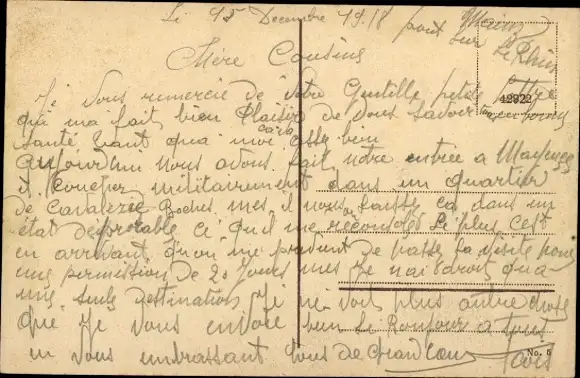 Le 15 Decembre 1918
pont sur Le Rhin
Mainz
Chère Cousine
Je vous remercie de votre Gentille petite lettre
qui ma fait bien Plaisir de vous savoir tous en bonne
santé tant qua moi cava assez bien
Aujourdhui nous avons fait notre entrée a Mayence
et coucher militairement dans un quartier
de Cavalerie Boches mes il nous laisse ca dans un
état ce qu'il me le plus cest
en arrivant qu'on me de passe la visite pour
une permission de 20 jours mes je nai droit qua
une seule destination Je ne voit plus autre chose
que Je vous envoie bien le Bonjour a tous
en vous embrassant tous de Grand Coeur
42322
No. 5